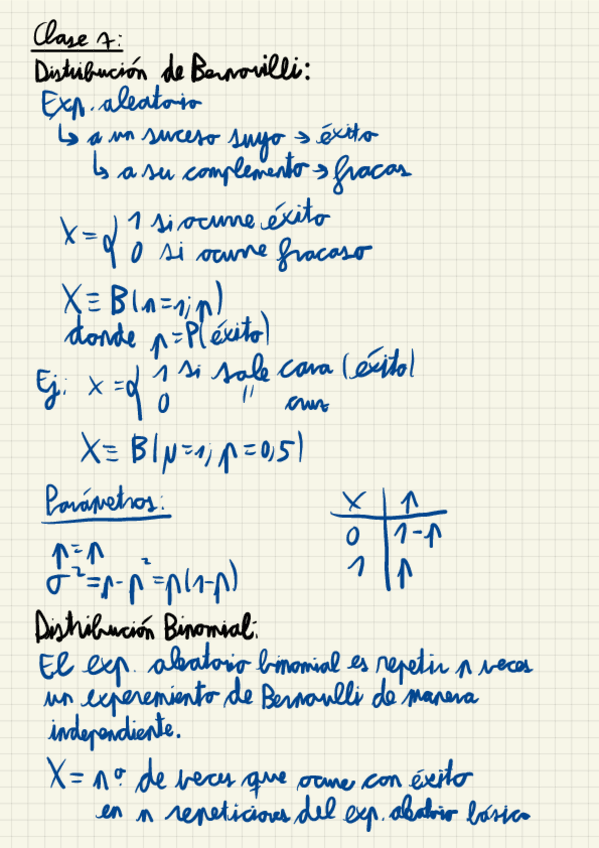 Clase 7:
Distribución de Bernouilli:
Exp. aleatorio
↳ a un suceso suyo → éxito
↳ a su complemento → fracas
X = { 1 si ocurre éxito
0 si ocurre fracaso
X ≡ B(n=1; p)
donde p = P(éxito)
Ej: x = { 1 si sale cara (éxito)
0 " cruz
X ≡ B(μ=1; p=0,5)
Parámetros:
X | p
0 | 1-p
1 | p
μ = p
σ² = p - p² = p(1-p)
Distribución Binomial:
El exp. aleatorio binomial es repetir n veces
un experemiento de Bernoulli de manera
independiente.
X = nº de veces que ocurre con éxito
en n repeticiones del exp. aleatorio básico